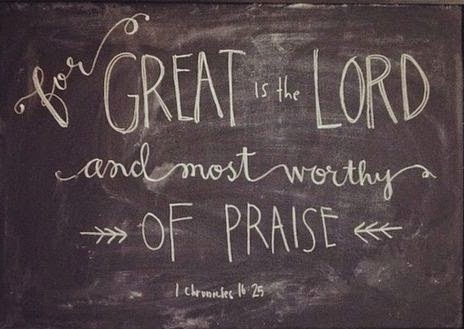 for GREAT is the LORD
and most worthy
OF PRAISE
1 chronicles 16 25